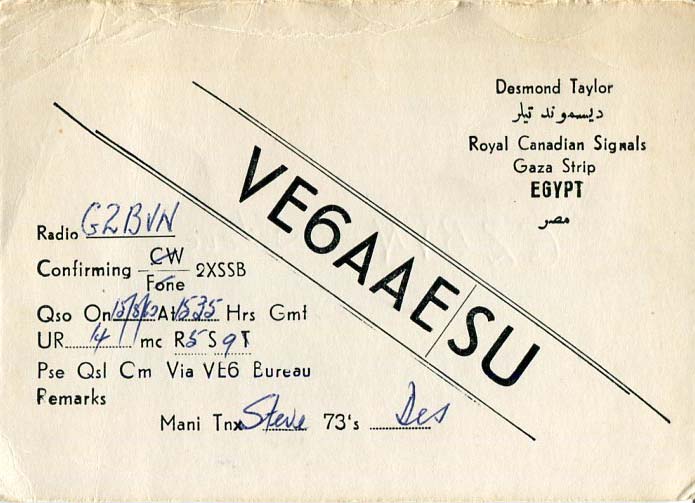 Desmond Taylor
ديسموند تيلر
Royal Canadian Signals
Gaza Strip
EGYPT
مصر
VE6AAE/SU
Radio G2BVN
Confirming CW
Fone 2XSSB
Qso On 15/8/62 At 1535 Hrs Gmt
UR 14 mc R5 S9 T
Pse Qsl Cm Via VE6 Bureau
Remarks
Mani Tnx Steve 73's Des